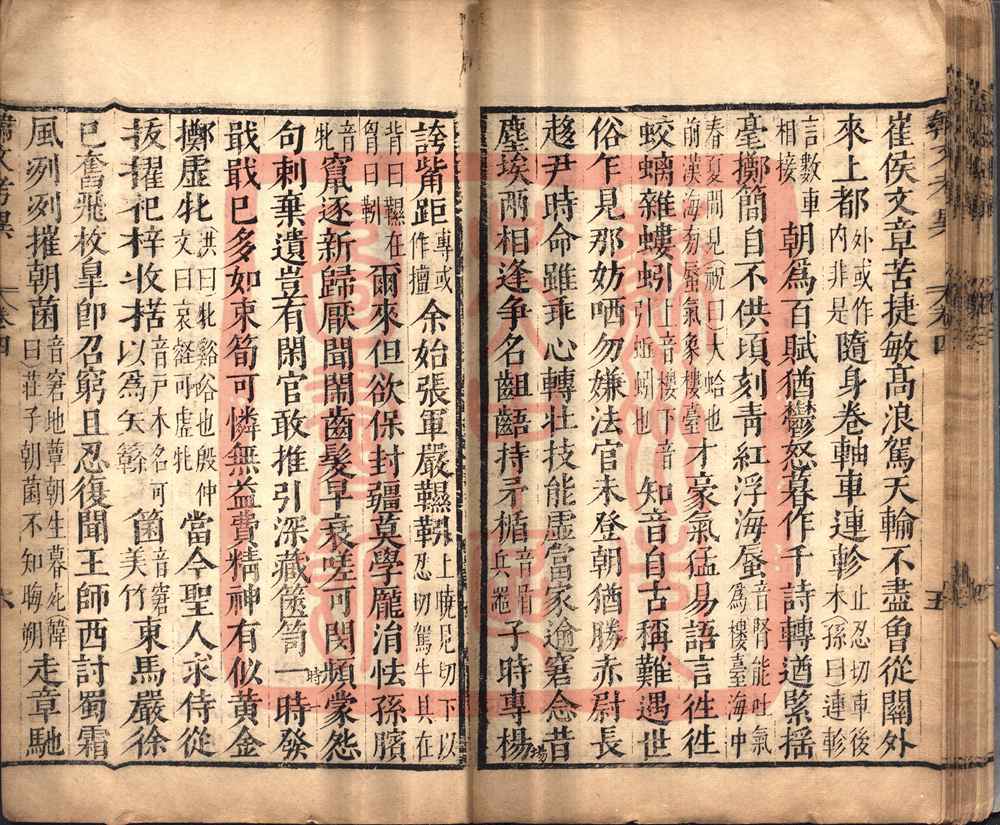 崔侯文章苦捷敏高浪駕天輸不盡魯從關外
來上都外或作內非是隨身卷軸車連軫止忍切車後木孫曰連軫
言數車相接朝爲百賦猶鬱怒暮作千詩轉遒緊搖
毫擲簡自不供頃刻青紅浮海蜃音腎能吐氣爲樓臺海中
春夏間見祝曰大蛤也前漢海旁蜃氣象樓臺才豪氣猛易語言徃徃
蛟螭雜螻蚓上音樓下音引蚯蚓也知音自古稱難遇世
俗乍見那妨哂勿嫌法官未登朝猶勝赤尉長
趍尹時命雖乖心轉壯技能虛富家逾窘念昔
塵埃兩相逢爭名齟齬持矛楯音盾兵器子時專楊場
誇觜距專或作擅余始張軍嚴韅靷上曉見切下以忍切駕牛具在
背曰韅在胷曰靷爾來但欲保封疆莫學龐涓怯孫臏
音牝竄逐新歸厭聞鬧齒髮早衰嗟可閔頻蒙怨
句刺棄遺豈有閑官敢推引深藏篋笥時一一時發
戢戢已多如束筍可憐無益費精神有似黃金
擲虛牝洪曰牝谿谷也殷仲文曰哀壑可虛牝當今聖人求侍從
拔擢杞梓收楛音戶木名可以爲矢簳箘音窘美竹東馬嚴徐
已奮飛枚臯卽召窮且忍復聞王師西討蜀霜
風冽冽摧朝菌音窘地蕈朝生暮死韓曰莊子朝菌不知晦朔走章馳